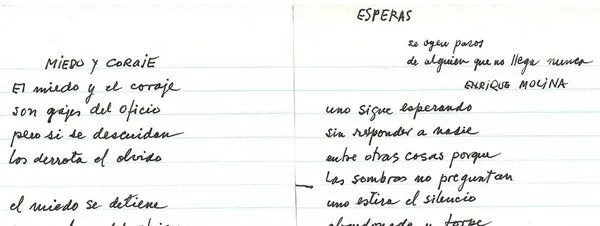 MIEDO Y CORAJE
El miedo y el coraje
son gajes del oficio
pero si se descuidan
los derrota el olvido
el miedo se detiene
ESPERAS
se oyen pasos
de alguien que no llega nunca
ENRIQUE MOLINA
uno sigue esperando
sin responder a nadie
entre otras cosas porque
las sombras no preguntan
uno estira el silencio
abandonado y torpe